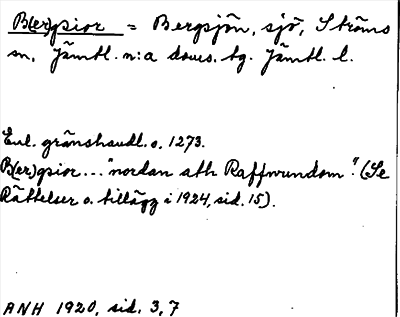 B(er)gsior = Bergsjön, sjö, Ströms
sn, Jämtl. n:a doms. tg. Jämtl. l.
Enl. gränshandl. o. 1273.
B(er)gsior... "nordan ath Raffwundom". (Se
Rättelser o. tillägg i 1924, sid. 15).
ANH 1920, sid. 3,7